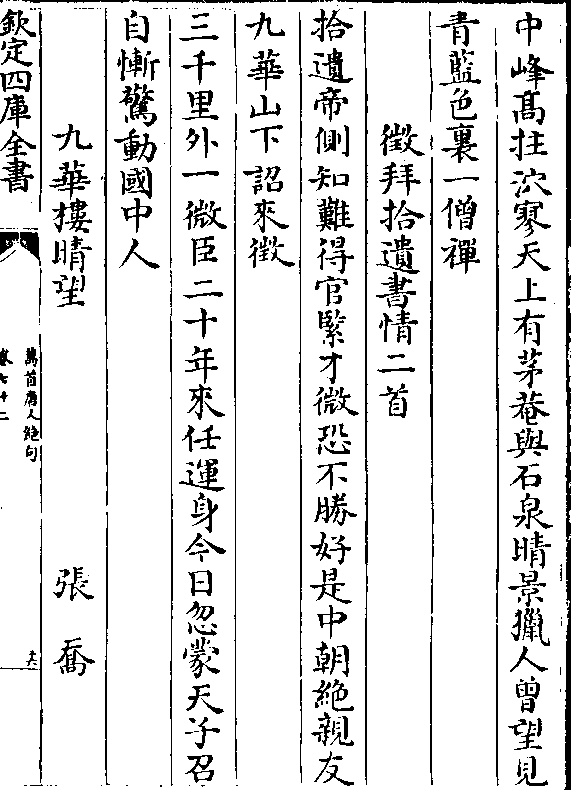 中峰髙拄泬寥天上有茅菴與石泉晴景獵人曾望見
青藍色裏一僧禪
徵拜拾遺書情二首
拾遺帝側知難得官緊才微恐不勝好是中朝絶親友
九華山下詔來徵
三千里外一微臣二十年來任運身今日忽蒙天子召
自慚驚動國中人
九華樓晴望
張喬
欽定四庫全書
萬首唐人絶句
卷七十二